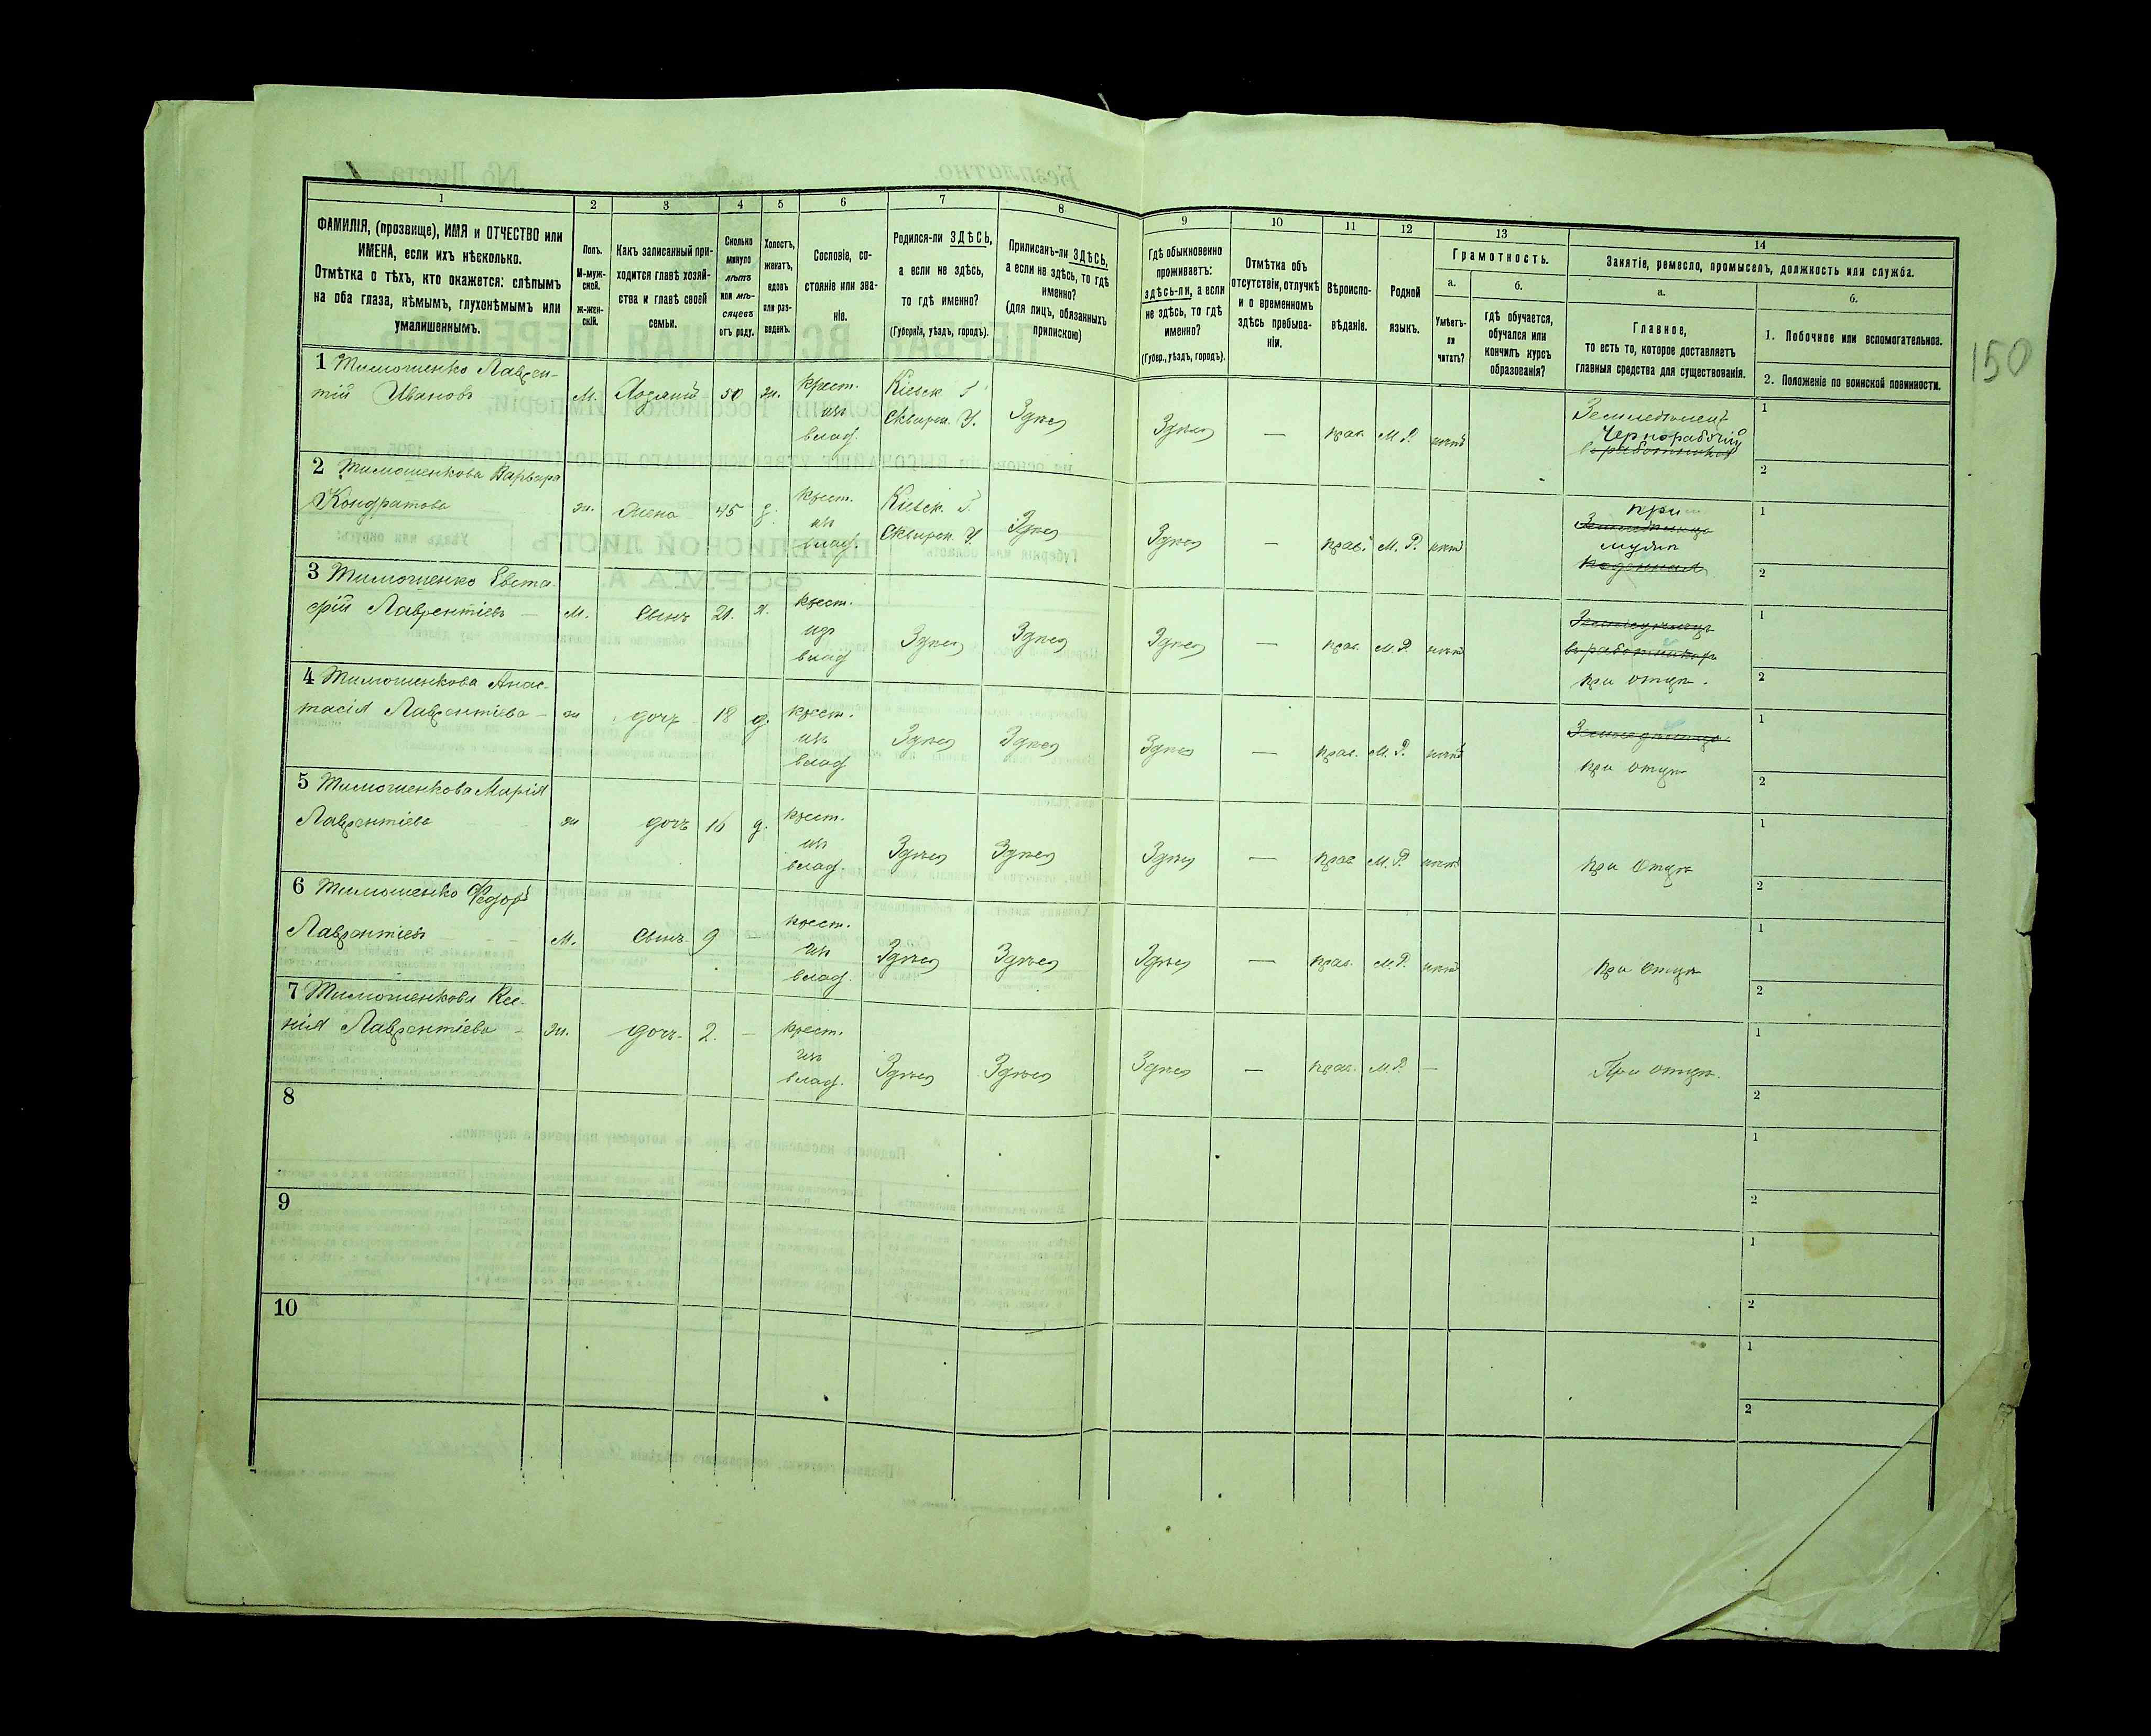 150
1 2 3 4 5 6 7 8 9 10 11 12 13 14
ФАМИЛІЯ, (прозвище), ИМЯ и ОТЧЕСТВО или
ИМЕНА, если ихъ нѣсколько.
Отмѣтка о тѣхъ, кто окажется: слѣпымъ
на оба глаза, нѣмымъ, глухонѣмымъ или
умалишеннымъ.
Полъ.
М-муж-
ской.
ж-жен-
скій.
Какъ записанный при-
ходится главѣ хозяй-
ства и главѣ своей
семьи.
Сколько
минуло
лѣтъ
или мѣ-
сяцевъ
отъ роду.
Холостъ,
женатъ,
вдовъ
или раз-
веденъ.
Сословіе, со-
стояніе или зва-
ніе.
Родился-ли ЗДѢСЬ,
а если не здѣсь,
то гдѣ именно?
(Губернія, уѣздъ, городъ).
Приписанъ-ли ЗДѢСЬ,
а если не здѣсь, то гдѣ
именно?
(для лицъ, обязанныхъ
припискою)
Гдѣ обыкновенно
проживаетъ:
здѣсь-ли, а если
не здѣсь, то гдѣ
именно?
(Губер., уѣздъ, городъ).
Отмѣтка объ
отсутствіи, отлучкѣ
и о временномъ
здѣсь пребыва-
ніи.
Вѣроиспо-
вѣданіе.
Родной
языкъ.
Грамотность.
а.
Умѣетъ-
ли
читать?
б.
гдѣ обучается,
обучался или
кончилъ курсъ
образованія?
Занятіе, ремесло, промыселъ, должность или служба.
а.
Главное,
то есть то, которое доставляетъ
главныя средства для существованія.
б.
1. Побочное или вспомогательное.
2. Положеніе по воинской повинности.
1 Тимошенко Лаврен-
тій Ивановъ М. Хозяинъ 50 ж. крест. изъ влад. Кіевск. Г. Сквирск. У. Здѣсь Здѣсь — прав. М. Р. нѣтъ Земледѣлецъ Чернорабочій
1
2
2 Тимошенкова Варвара
Кондратова ж. жена 45 крест. изъ влад. Кіевск. Г. Сквирск. У. Здѣсь Здѣсь — прав. М. Р. нѣтъ при мужѣ поденная
1
2
3 Тимошенко Евста-
фій Лаврентіевъ — М. Сынъ 21. х. крест. изъ влад Здѣсь Здѣсь Здѣсь — прав. М. Р. нѣтъ при отцѣ.
1
2
4 Тимошенкова Анас-
тасія Лаврентіева — ж дочь 18 д. крест. изъ влад Здѣсь Здѣсь Здѣсь — прав. М. Р. нѣтъ при отцѣ
1
2
5 Тимошенкова Марія
Лаврентіева ж дочь 16 д. крест. изъ влад. Здѣсь Здѣсь Здѣсь — прав М. Р. нѣтъ при отцѣ
1
2
6 Тимошенко Федоръ
Лаврентіевъ М. Сынъ 9 — крест. изъ влад. Здѣсь Здѣсь Здѣсь — прав. М. Р. нѣтъ при отцѣ
1
2
7 Тимошенкова Ксе-
нія Лаврентіева — ж. дочь 2. — крест. изъ влад. Здѣсь Здѣсь Здѣсь — прав. М. Р. — При отцѣ.
1
2
8
1
2
9
1
2
10
1
2